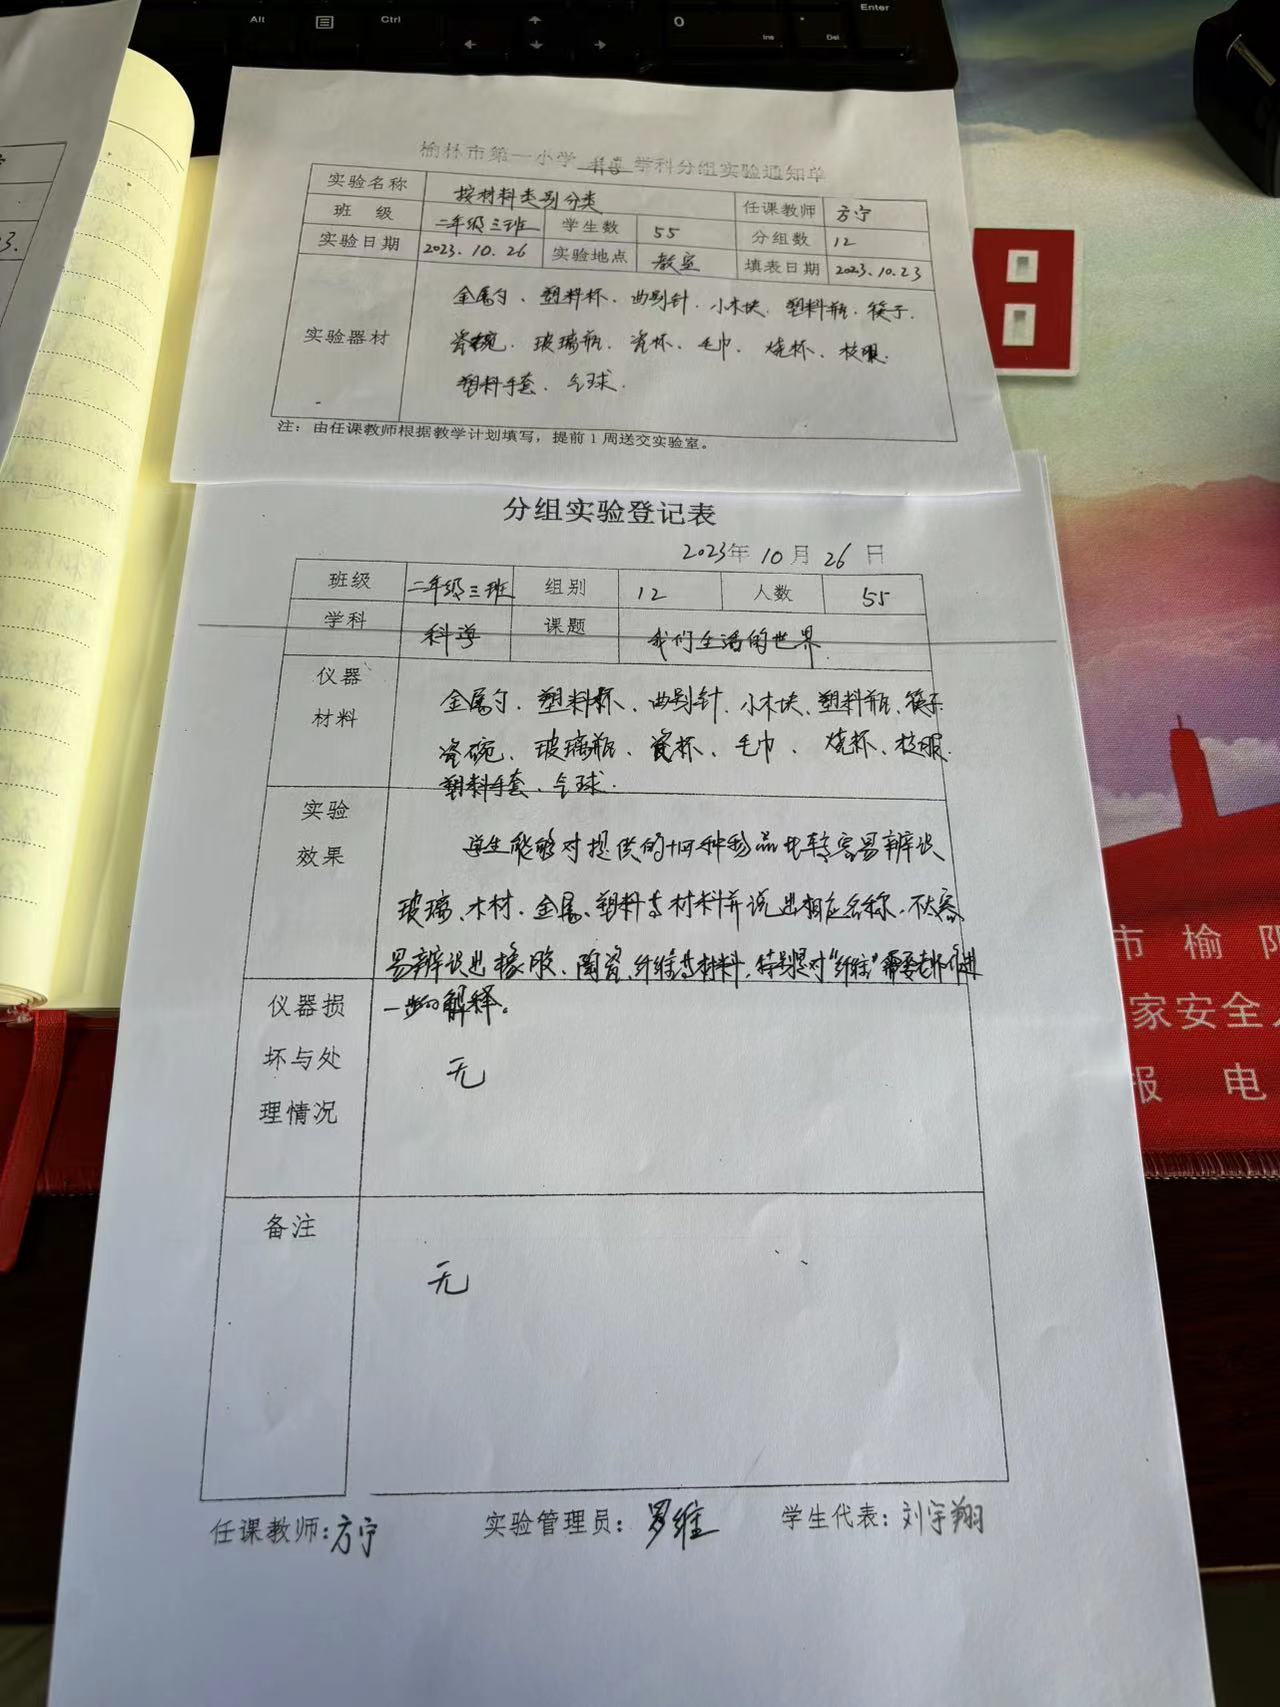 Alt
Ctrl
0
Ins
Del
Enter
榆林市第一小学 科学 学科分组实验通知单
实验名称 按材料类别分类 任课教师 方宁
班 级 二年级三班 学生数 55 分组数 12
实验日期 2023.10.26 实验地点 教室 填表日期 2023.10.23
实验器材 金属勺、塑料杯、曲别针、小木块、塑料瓶、筷子、
瓷碗、玻璃瓶、瓷杯、毛巾、烧杯、校服、
塑料手套、气球.
注：由任课教师根据教学计划填写，提前1周送交实验室。
分组实验登记表
2023年 10月 26日
班级 二年级三班 组别 12 人数 55
学科 科学 课题 我们生活的世界.
仪器材料 金属勺、塑料杯、曲别针、小木块、塑料瓶、筷子
瓷碗、玻璃瓶、瓷杯、毛巾、烧杯、校服.
塑料手套、气球.
实验效果 学生能够对提供的十四种物品比较容易辨识
玻璃、木材、金属、塑料等材料并说出相应名称，不太容
易辨识出橡胶、陶瓷、纤维等材料，特别是对“纤维”需要老师进
一步的解释。
仪器损坏与处理情况 无
备注 无
任课教师：方宁 实验管理员：罗维 学生代表：刘宇翔
市 榆 阳
家安全
报 电